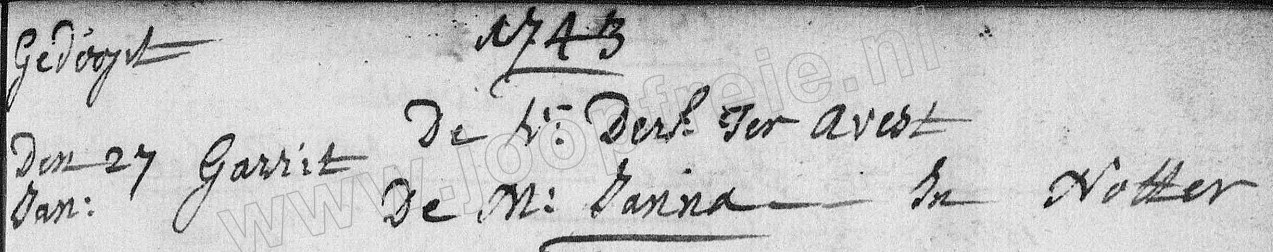 Gedoopt 1743
De V: Derk Ter Avest
Den 27 Garrit
Jan: De M: Janna — In Notter
www.joopfreie.nl